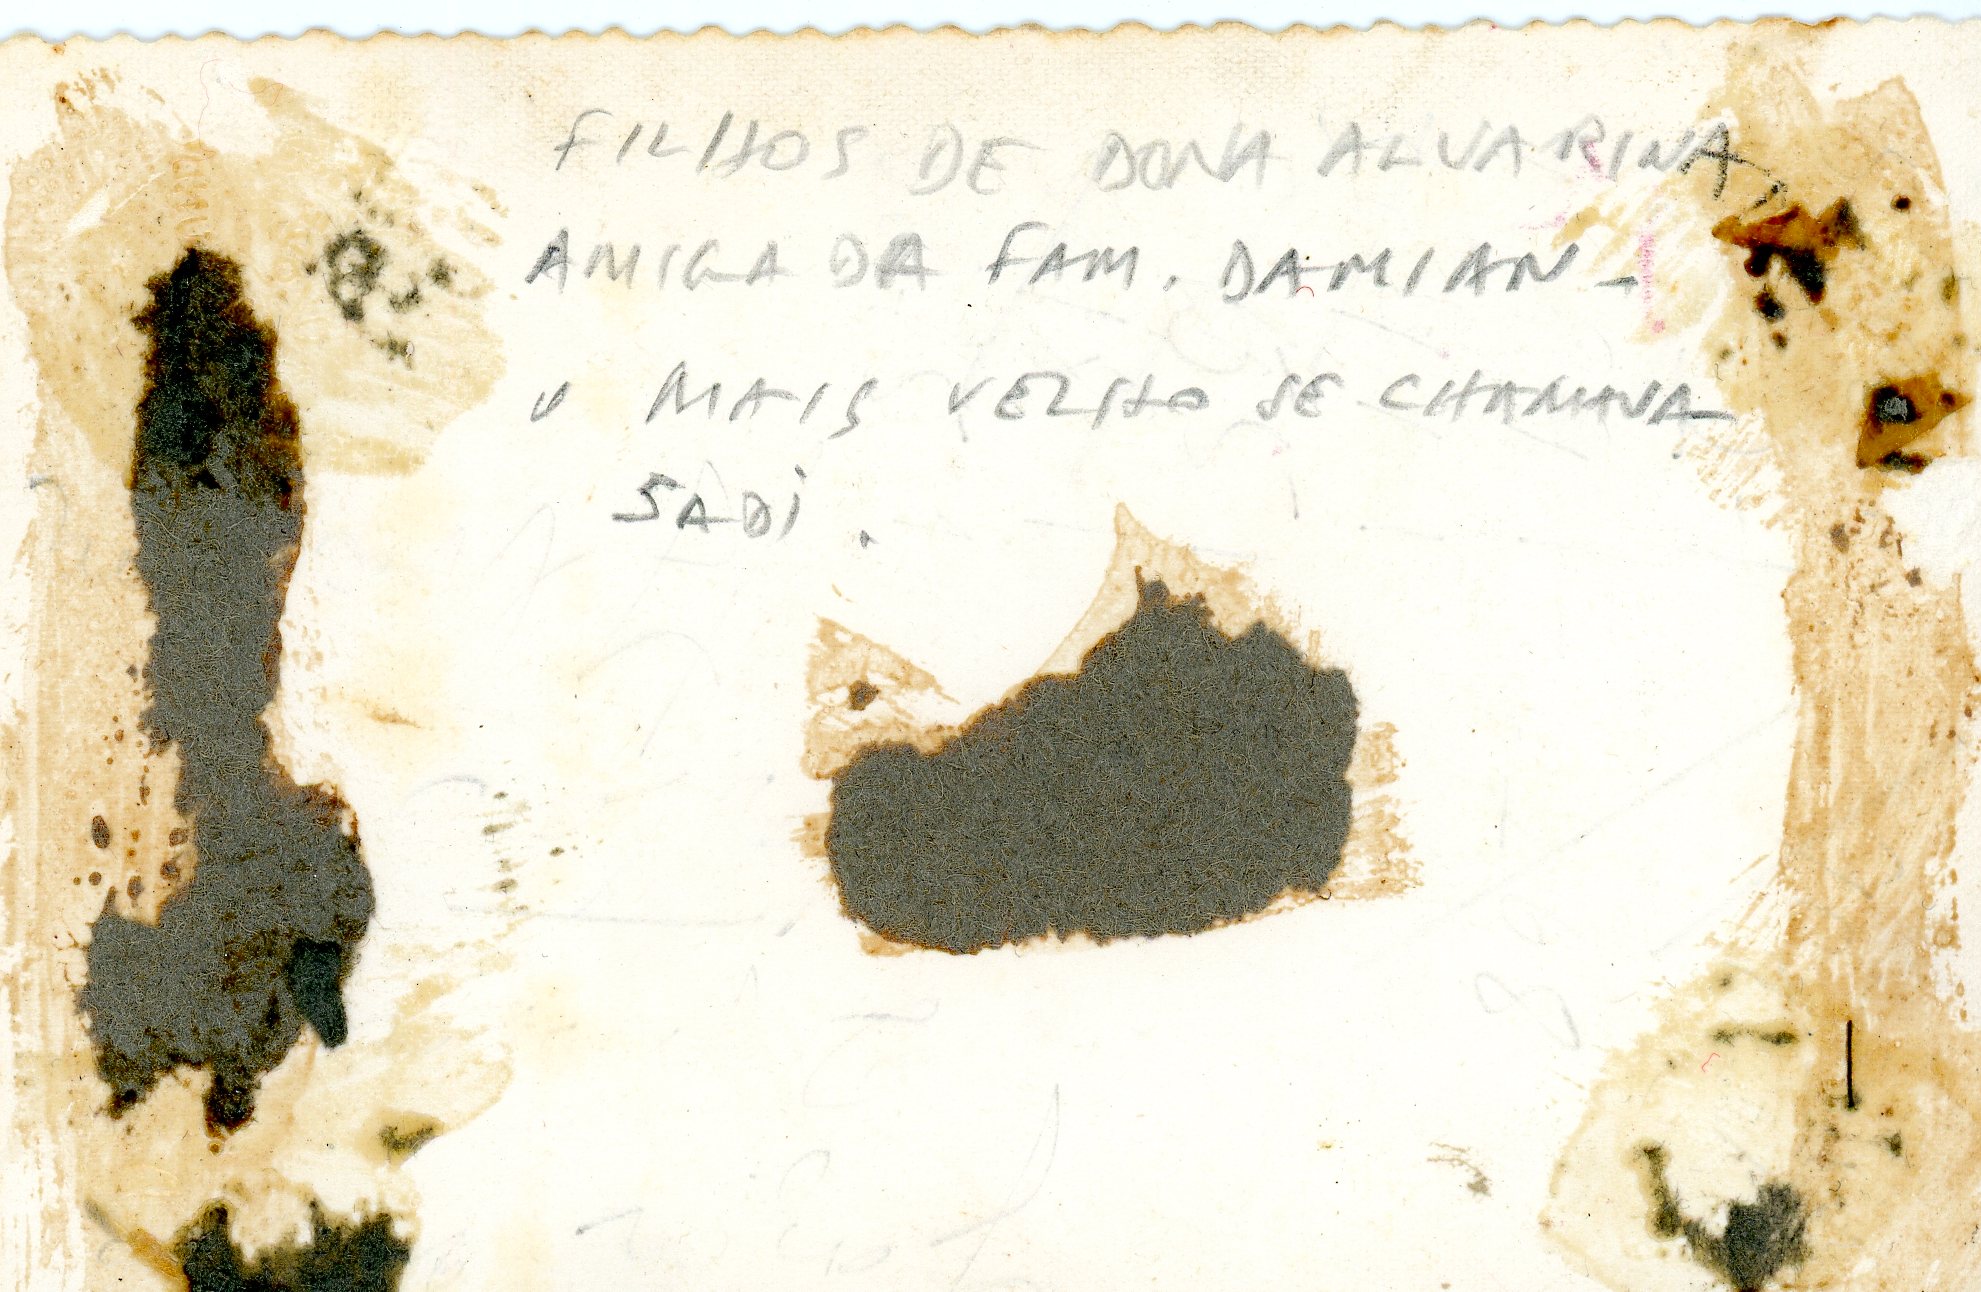 FILHOS DE DONA ALVARINA,
AMIGA DA FAM. DAMIAN -
O MAIS VELHO SE CHAMAVA
SADI.